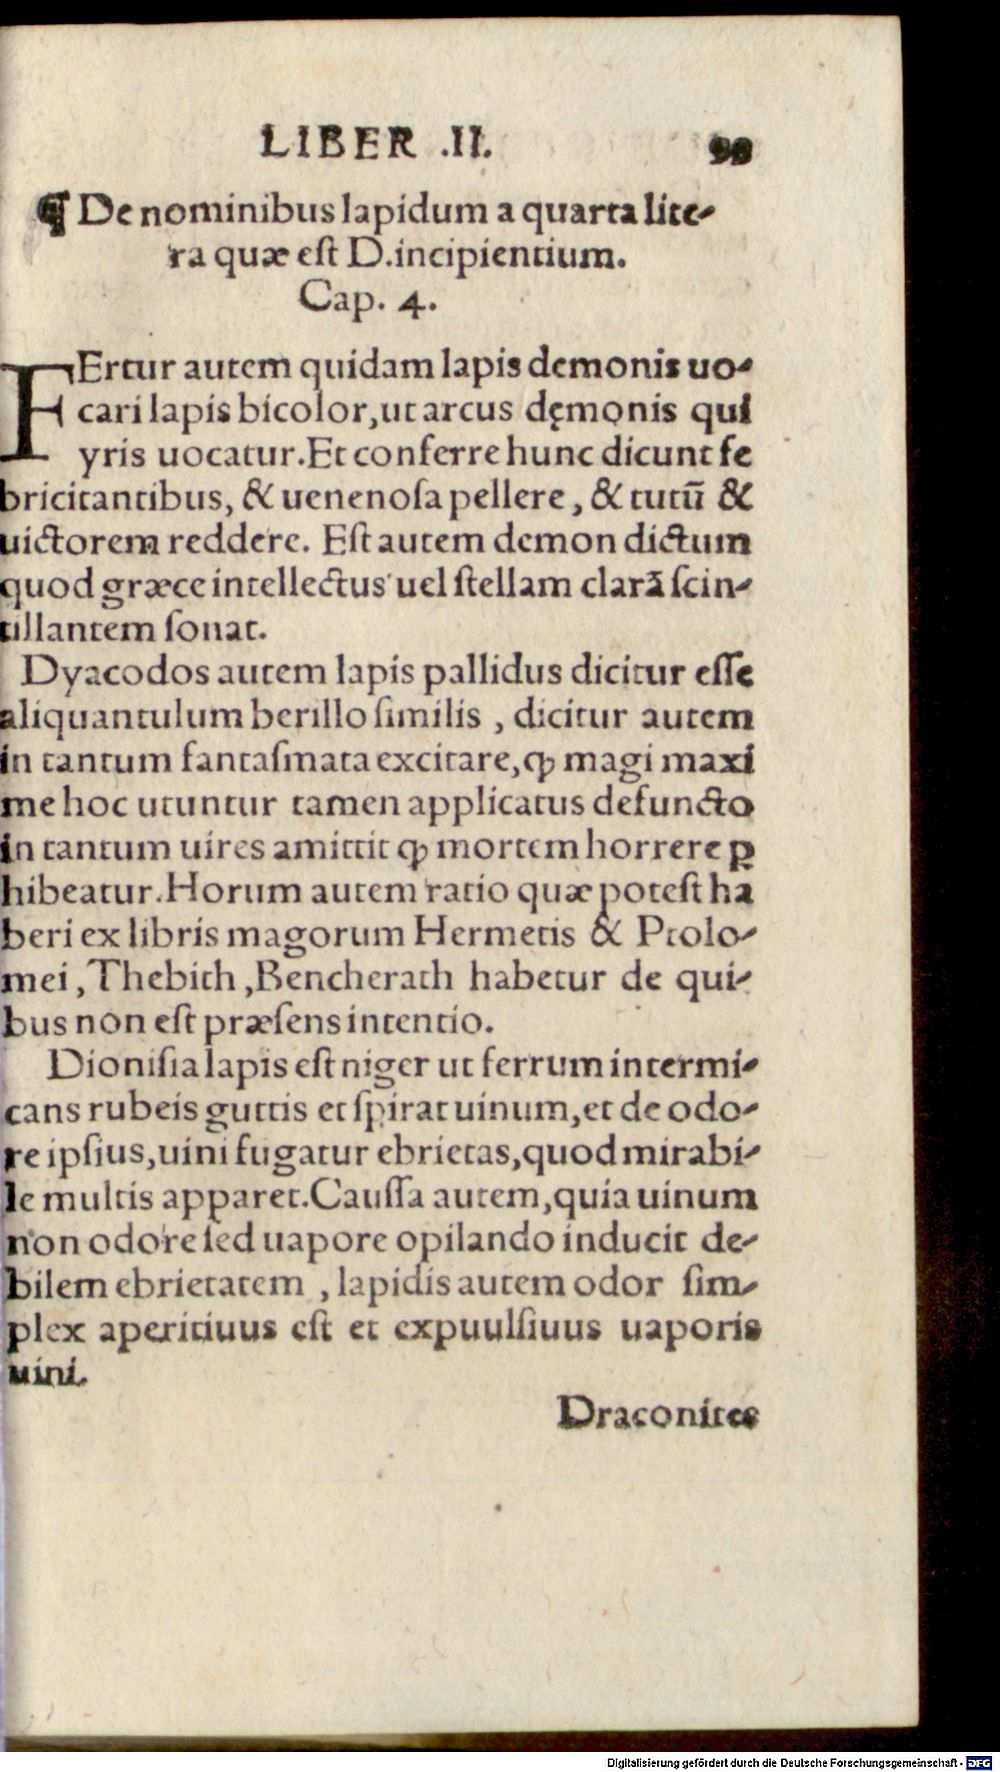 LIBER .II. 98
¶ De nominibus lapidum a quarta lite-
ra quæ eſt D.incipientium.
Cap. 4.
FErtur autem quidam lapis demonis uo-
cari lapis bicolor,ut arcus dęmonis qui
yris uocatur.Et conferre hunc dicunt fe
bricitantibus, & uenenoſa pellere, & tutū &
uictorem reddere. Eſt autem demon dictum
quod græce intellectus uel ſtellam clarā ſcin-
tillantem ſonat.
Dyacodos autem lapis pallidus dicitur eſſe
aliquantulum berillo ſimilis , dicitur autem
in tantum fantaſmata excitare,ꝙ magi maxi
me hoc utuntur tamen applicatus defuncto
in tantum uires amittit ꝙ mortem horrere ꝑ
hibeatur.Horum autem ratio quæ poteſt ha
beri ex libris magorum Hermetis & Ptolo-
mei,Thebith,Bencherath habetur de qui-
bus non eſt præſens intentio.
Dioniſia lapis eſt niger ut ferrum intermi-
cans rubeis guttis et ſpirat uinum,et de odo-
re ipſius,uini fugatur ebrietas,quod mirabi-
le multis apparet.Cauſſa autem,quia uinum
non odore ſed uapore opilando inducit de-
bilem ebrietatem , lapidis autem odor ſim-
plex aperitiuus eſt et expuulſiuus uaporis
uini.
Draconites
Digitalisierung gefördert durch die Deutsche Forschungsgemeinschaft - DFG